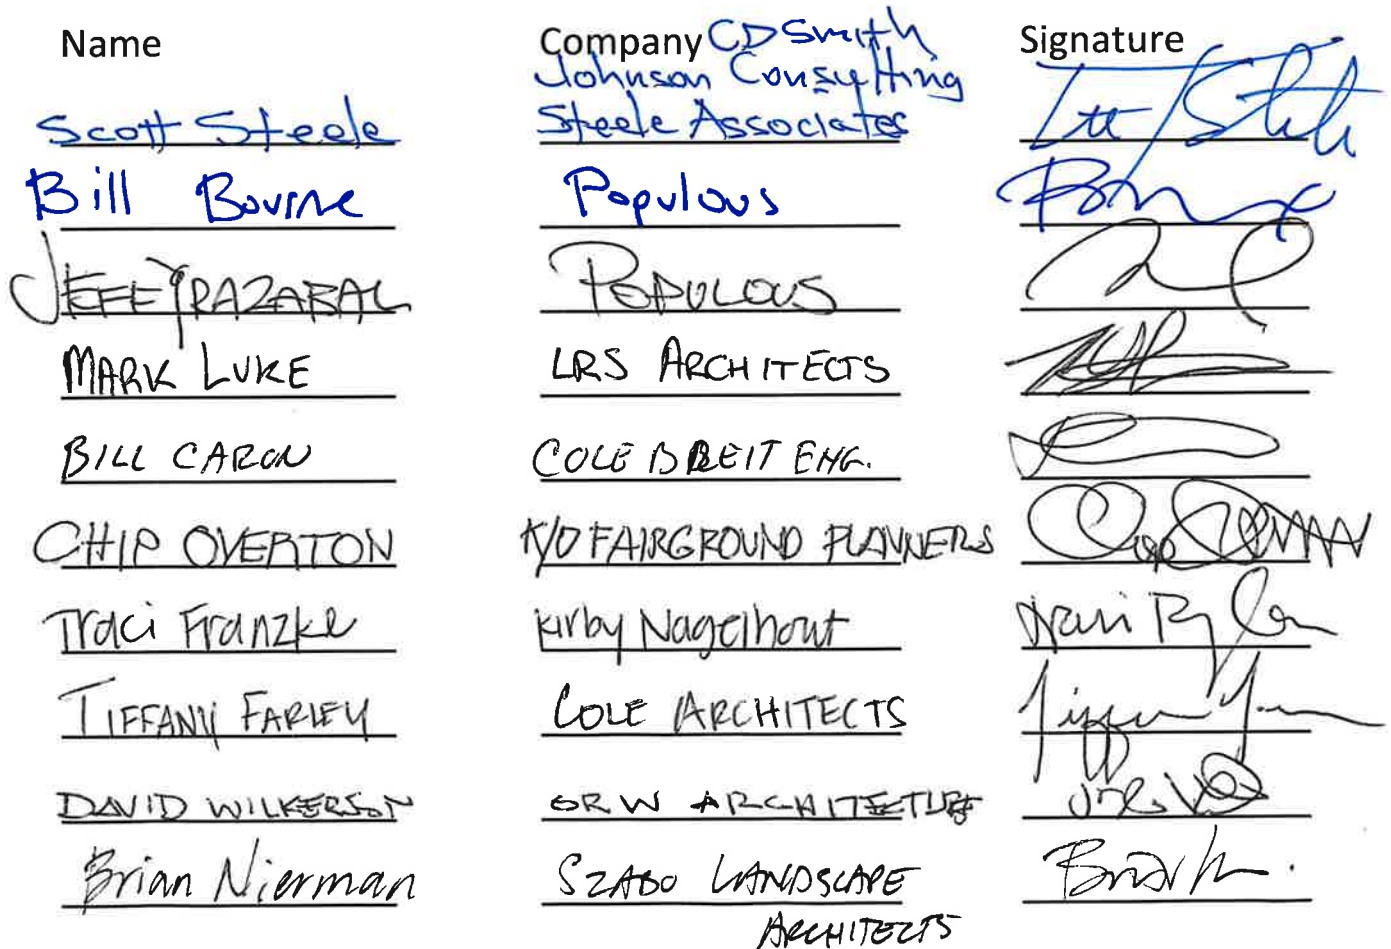 Name Company CD Smith Signature
Johnson Consulting
Scott Steele Steele Associates
Bill Bourne Populous
JEFF YRAZABAL POPULOUS
MARK LUKE LRS ARCHITECTS
BILL CARON COLE BREIT ENG.
CHIP OVERTON K/O FAIRGROUND PLANNERS
Traci Franzke Kirby Nagelhout
TIFFANY FARLEY COLE ARCHITECTS
DAVID WILKERSON ORW ARCHITECTURE
Brian Nierman SZABO LANDSCAPE
ARCHITECTS